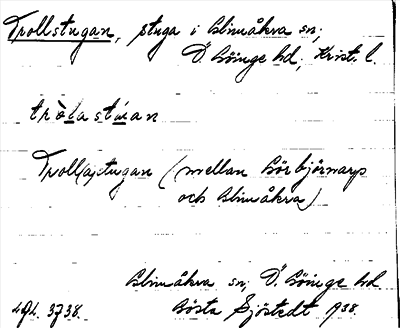 Trollstugan, stuga i Glimåkra sn,
Ö. Göinge hd, Krist. l.
tròlastúan
Troll(a)stugan (mellan Görbjörnarp
och Glimåkra)
Glimåkra sn, Ö. Göinge hd
Gösta Sjöstedt 1938.